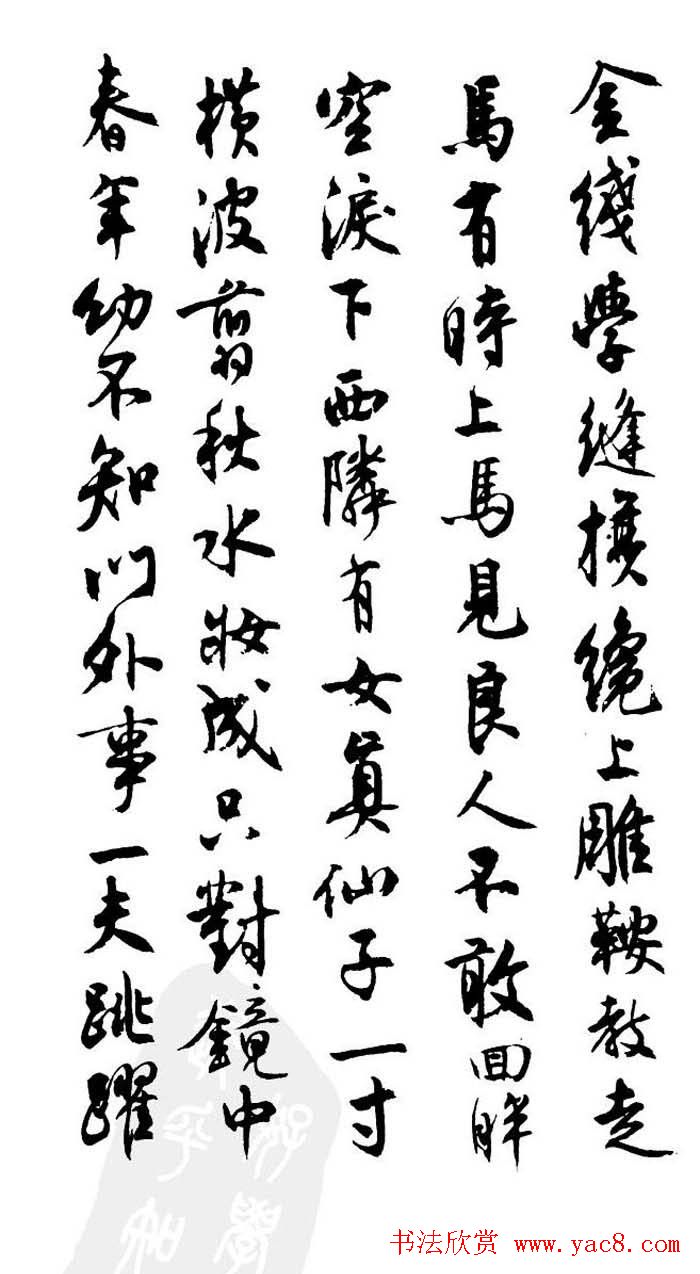 金綫學縫旗纔上雕鞍教走
馬有時上馬見良人不敢回眸
空淚下西隣有女真仙子一寸
橫波翦秋水妝成只對鏡中
春年幼不知門外事一夫跳躍
书法欣赏 www.yac8.com